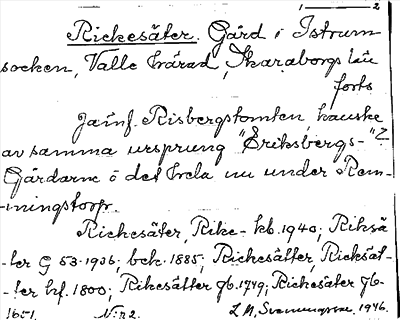 1 — 2
Rickesäter. Gård i Istrum
socken, Valle härad, Skaraborgs län
forts
Jämf. Risbergstomten kanske
av samma ursprung "Eriksbergs-"?
Gårdarne ö det hela nu under Rem-
-mingstorp.
Rickesäter, Rike- kb. 1940; Riksä
-ter G 53. 1906; bck. 1885; Rickesätter, Ricksät-
-ter kf. 1800; Rikesätter gb. 1749; Rickesäter gb-
1651. N:r 2. L. M. 1946.